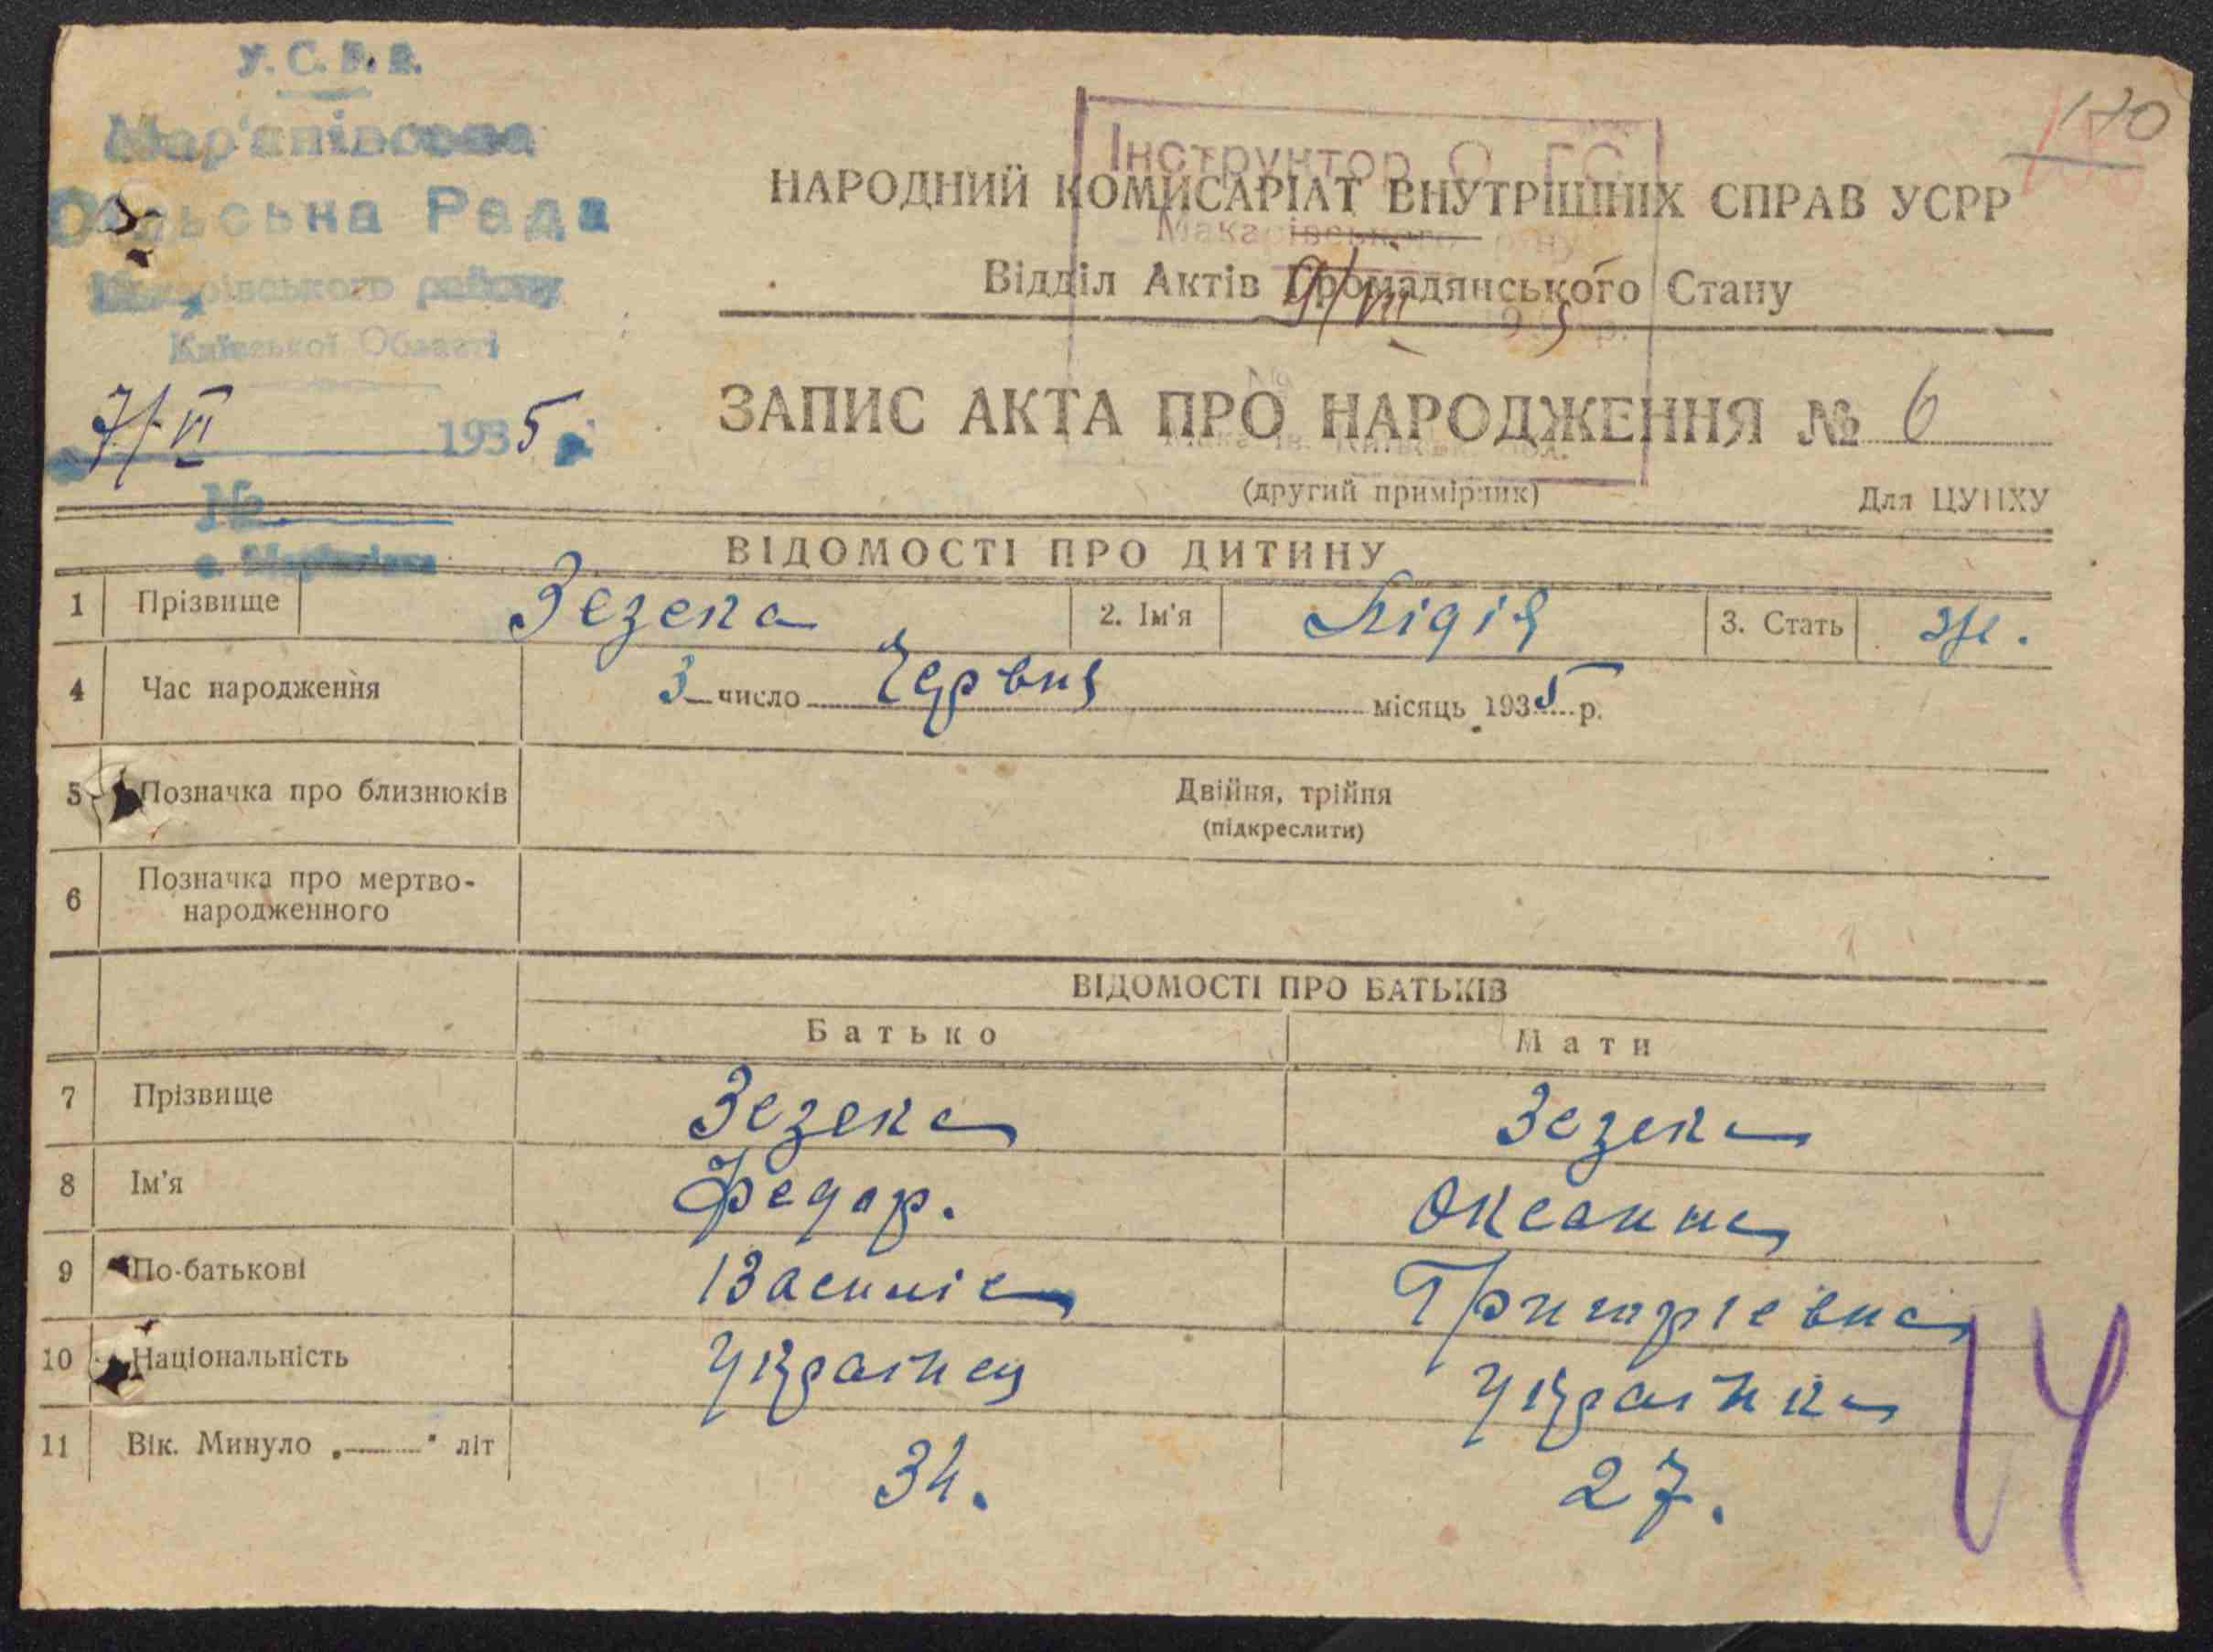 У.С.Р.Р.
Мар'янівська
Сільська Рада
Макарівського району
Київської Області
7/VI 1935 р.
№
с. Мар'янівка
170
Інструктор О ГС
Макарівського р-ну
9/VII 1935 р.
НАРОДНИЙ КОМИСАРІАТ ВНУТРІШНІХ СПРАВ УСРР
Відділ Актів Громадянського Стану
ЗАПИС АКТА ПРО НАРОДЖЕННЯ № 6
(другий примірник) Для ЦУНХУ
ВІДОМОСТІ ПРО ДИТИНУ
1 Прізвище Зезека 2. Ім'я Лідія 3. Стать ж.
4 Час народження 3 число Червня місяць 1935 р.
5 Позначка про близнюків Двійня, трійня
(підкреслити)
6 Позначка про мертво-
народженного
ВІДОМОСТІ ПРО БАТЬКІВ
Батько Мати
7 Прізвище Зезека Зезека
8 Ім'я Федор. Оксанна
9 По-батькові Григріевна
10 Національність Українец Українка
11 Вік. Минуло „ “ літ 34. 27.